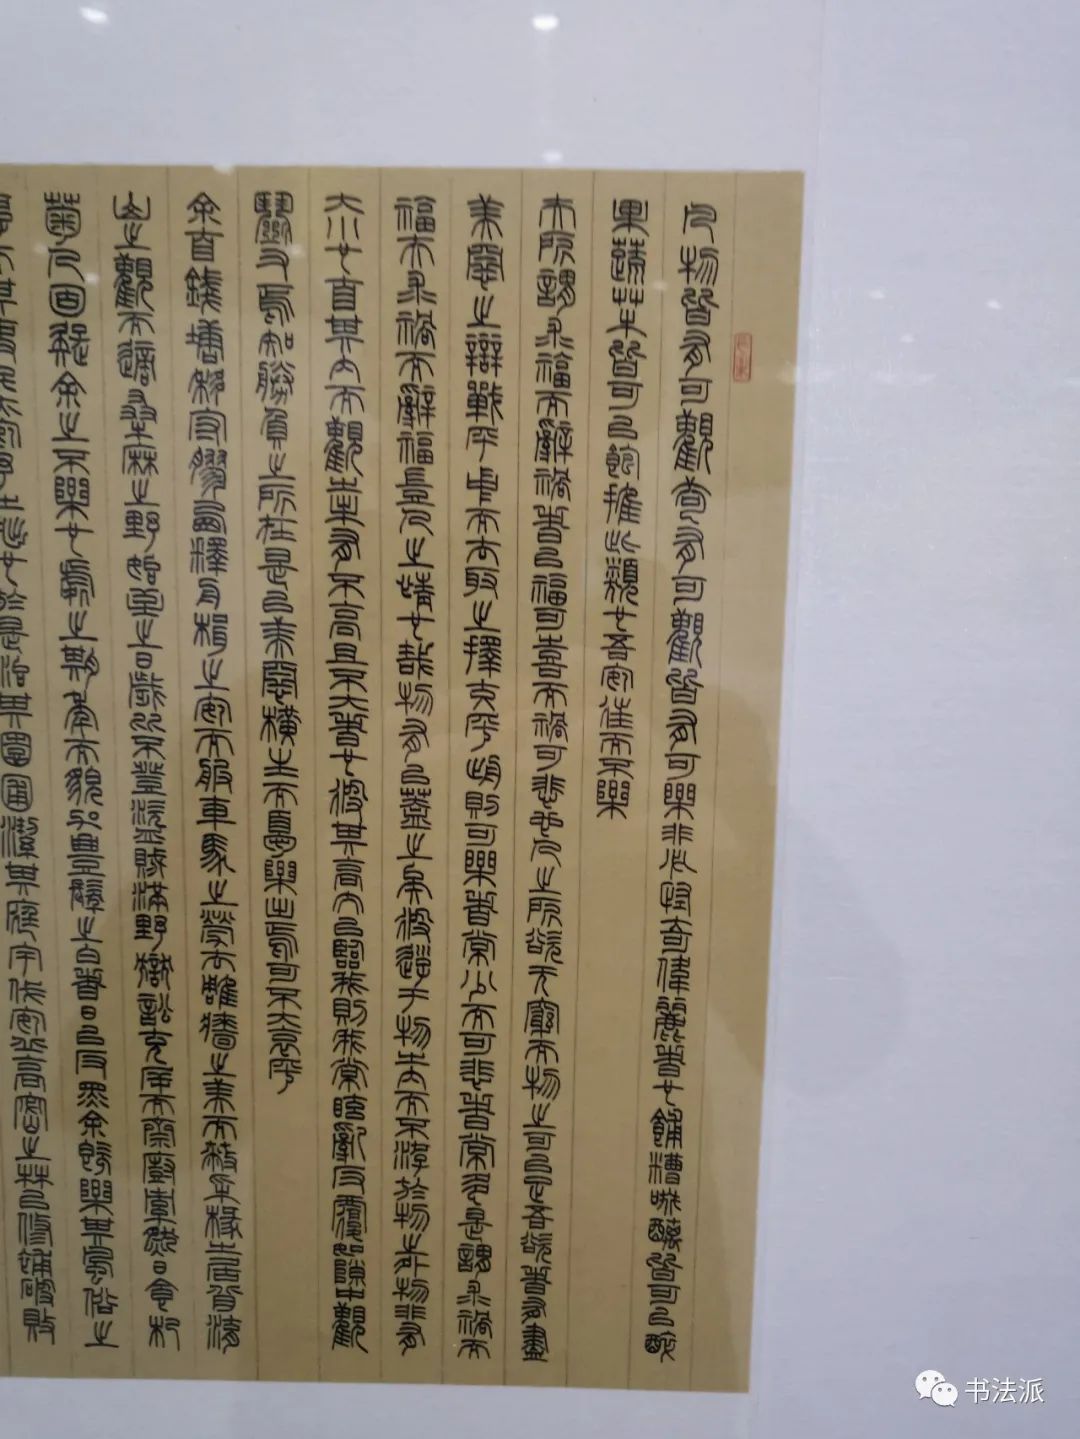 凡物皆有可觀苟有可觀皆有可樂非必怪奇偉麗者也餔糟啜醨皆可以醉
果蔬草木皆可以飽推此類也吾安往而不樂
夫所謂求福而辭禍者以福可喜而禍可悲也人之所欲无窮而物之可以足吾欲者有盡
美惡之辯戰乎中而去取之擇交乎前則可樂者常少而可悲者常多是謂求禍而
福夫求禍而辭福豈人之情也哉物有以蓋之矣彼遊于物之內而不遊於物之外物非有
大小也自其內而觀之未有不高且大者也彼其高大以臨我則我常眩亂反覆如隙中觀
鬭又焉知勝負之所在是以美惡橫生而憂樂出焉可不大哀乎
余自錢塘移守膠西釋舟楫之安而服車馬之勞去雕牆之美而蔽采椽之居背湖
山之觀而適桑麻之野始至之日歲比不登盜賊滿野獄訟充斥而齋廚索然日食杞
菊人固疑余之不樂也處之期年而貌加豐髮之白者日以反黑余既樂其風俗之
其吏民亦安予之拙也於是治其園圃潔其庭宇伐安丘高密之木以修補破敗
书法派